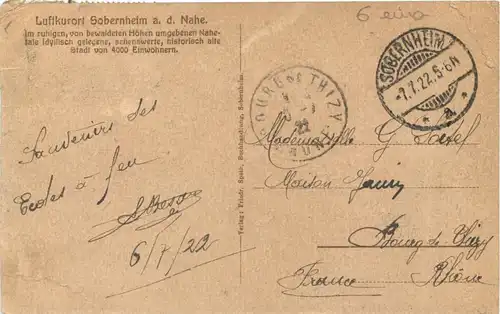 6 euro
Luftkurort Sobernheim a. d. Nahe.
Im ruhigen, von bewaldeten Höhen umgebenen Nahe-
tale idyllisch gelegene, sehenswerte, historisch alte
Stadt von 4000 Einwohnern.
SOBERNHEIM
-7.7.22.5-6N
* a *
BOURG DE THIZY
22
RHONE
Verlag: Friedr. Sponr, Buchhandlung, Sobernheim.
Souvenirs des
Ecoles à feu
6/7/22
Mademoiselle G
Maison
Bourg de Thizy
France Rhône